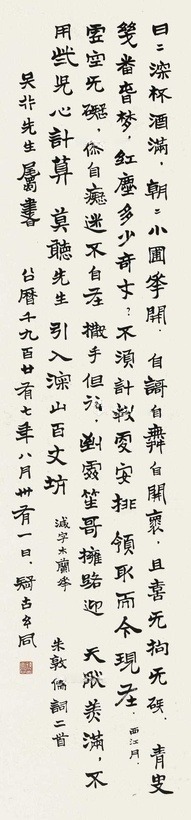 日〻深杯酒滿,朝〻小圃華開.自謌自舞自開褱,且喜无拘无碍.青史
幾番春夢,紅塵多少奇才?不須計較更安排,領取而今現在.西江月.
虛空无礙,你自癡迷不自在.撒手但行,到處笙哥擁路迎 天然美滿,不
用些兒心計算 莫聽先生 引入深山百丈坑 減字木蘭華 朱敦儒詞二首
先生屬書 公曆千九百廿有七年八月卅有一日,疑古玄同